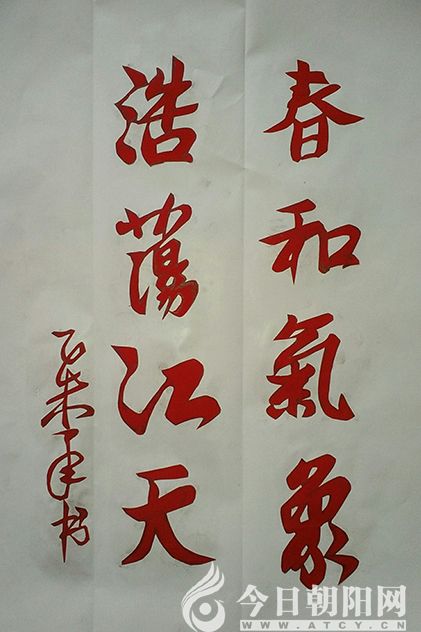 春和氣象
浩蕩江天
今日朝阳网
WWW.ATCY.CN